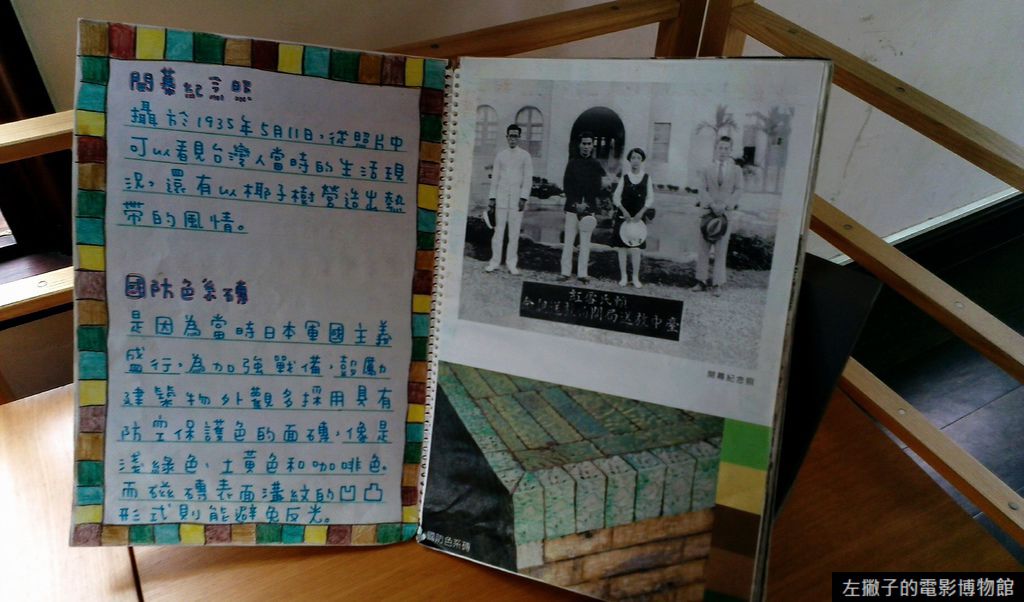 開幕紀念照
攝於1935年5月11日，從照片中
可以看見台灣人當時的生活現
況，還有以椰子樹營造出熱
帶的風情。
國防色系磚
是因為當時日本軍國主義
盛行，為加強戰備，鼓勵
建築物外觀多採用具有
防空保護色的面磚，像是
淺綠色、土黃色和咖啡色。
而磁磚表面溝紋的凹凸
形式則能避免反光。
臺中放送局開局
開幕紀念照
國防色系磚
左撇子的電影博物館